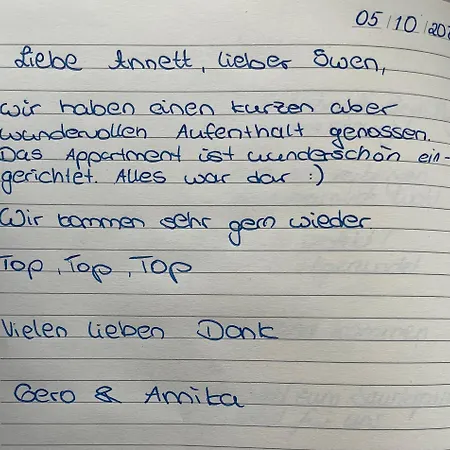 05/10/202
Liebe Annett, lieber Swen,
wir haben einen kurzen aber
wundervollen Aufenthalt genossen.
Das Appartment ist wunderschön ein-
gerichtet. Alles war dar :)
Wir kommen sehr gern wieder.
Top, Top, Top
Vielen lieben Dank
Gero & Annika